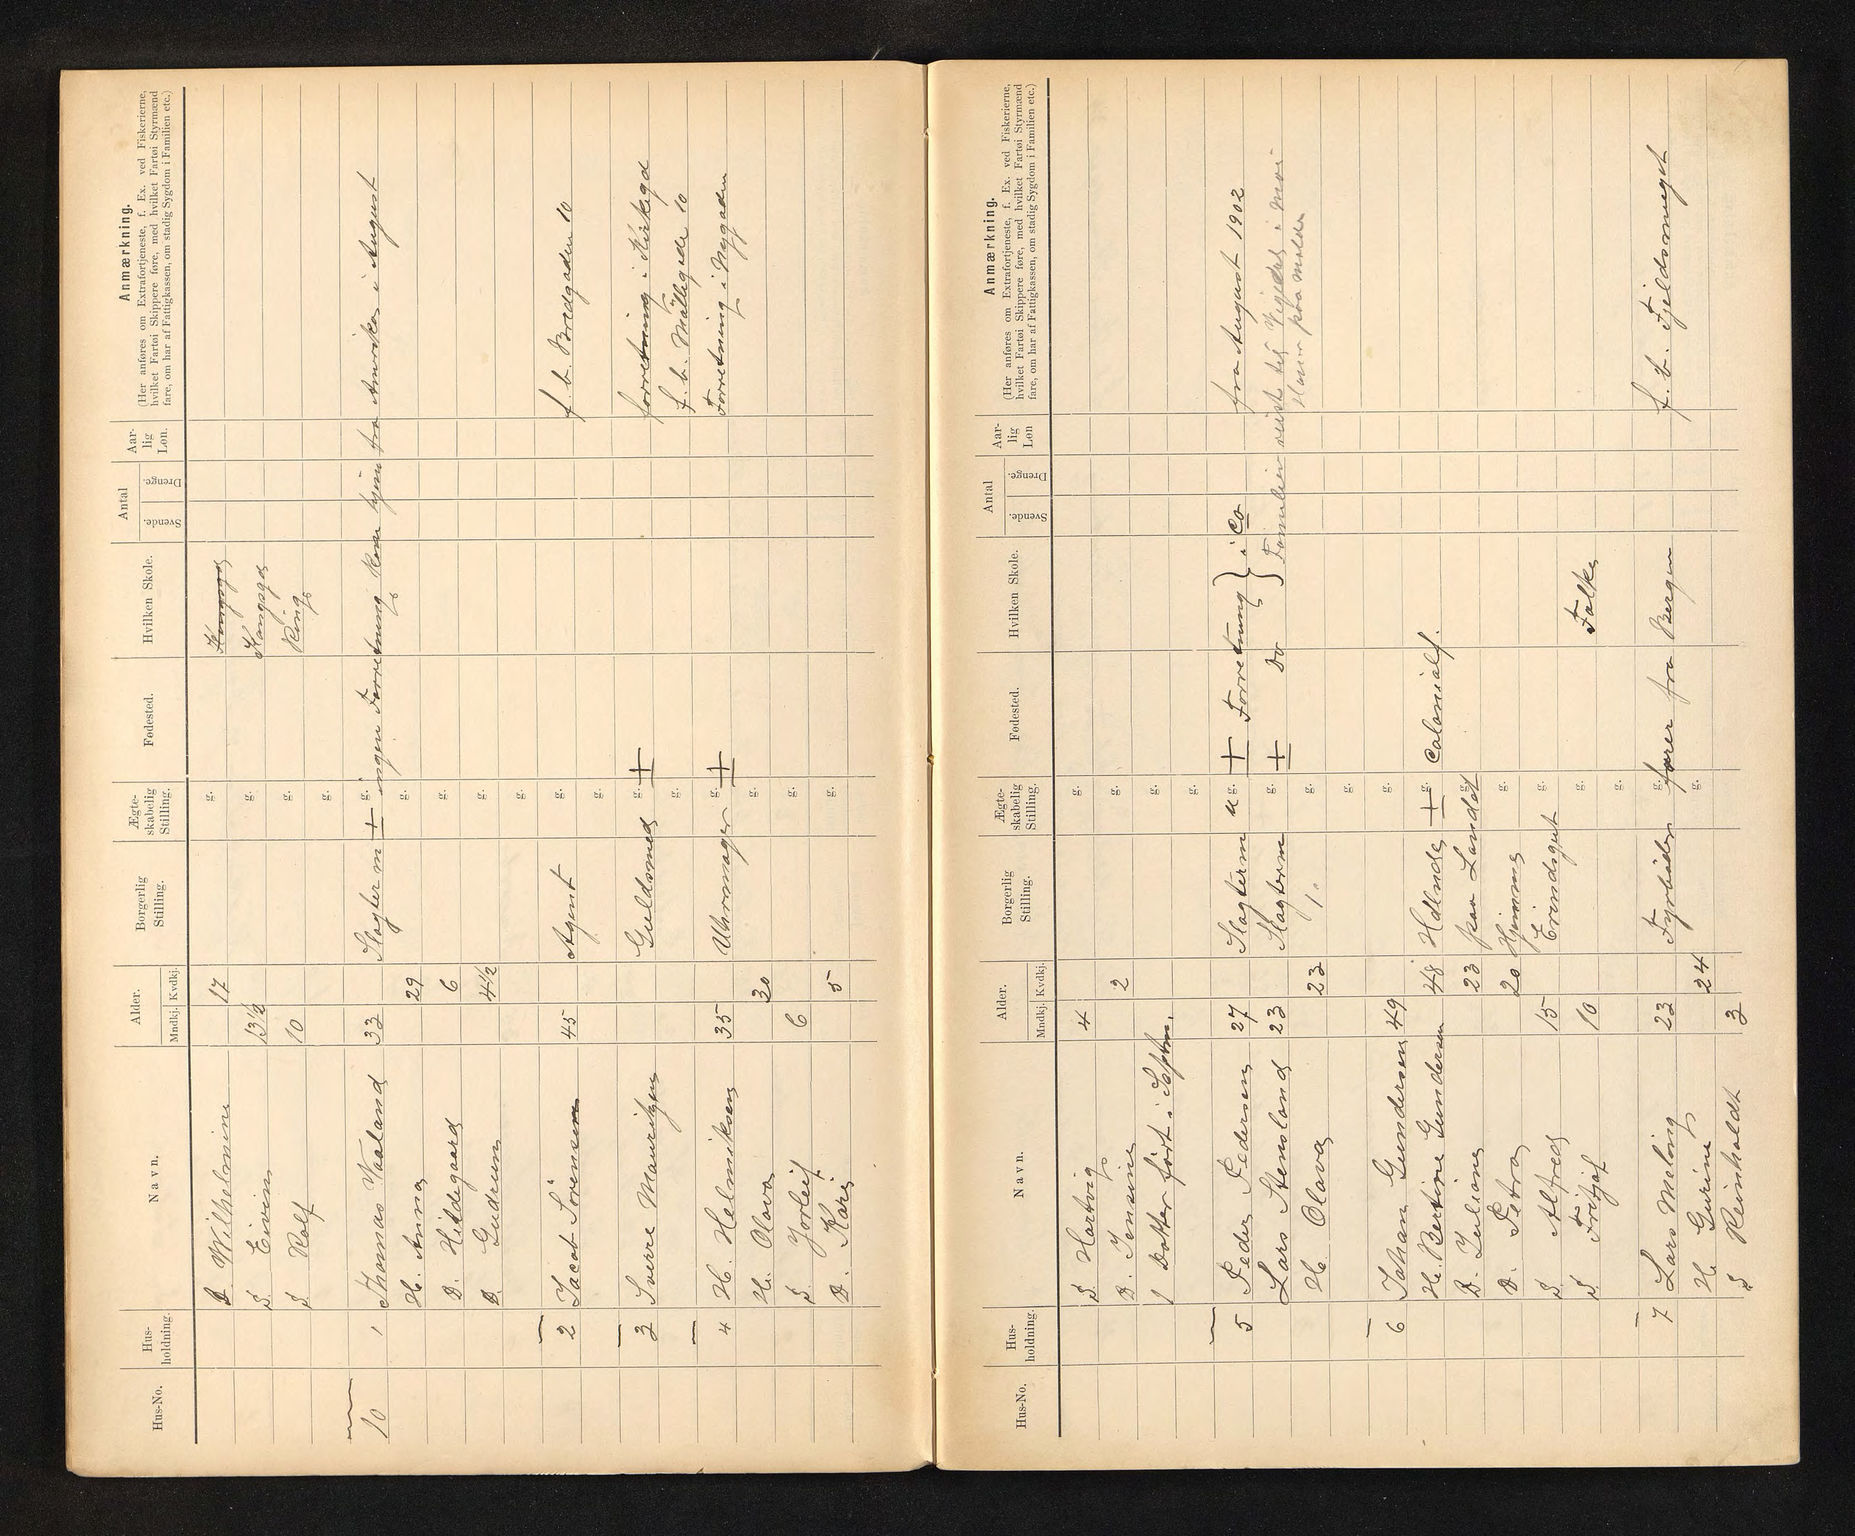 Hus-No. Hus-holdning. Navn. Alder. Mndkj. Kvdkj. Borgerlig Stilling. Ægte-skabelig Stilling. Fødested. Hvilken Skole. Antal Svende. Drenge. Aar-lig Løn. Anmærkning.
(Her anføres om Extrafortjeneste, f. Ex. ved Fiskerierne,
hvilket Fartøi Skippere føre, med hvilket Fartøi Styrmænd
fare, om har af Fattigkassen, om stadig Sygdom i Familien etc.)
D. Wilhelmine 17 g. Kongsgd
S. Eivin 13½ g. Kongsgd
S. Rolf 10 g. Kongs
g.
10 1 Thomas Vaaland 33 Slagterm g. + ingen Forretning kom hjem fra Amerika i August
H. Anna 29 g.
D. Hildegaard 6 g.
D Gudrun 4½ g.
g.
2 Jacob Sörensen 45 Agent g. f. b. Bredgaden 10
g.
3 Sverre Mauritzen Guldsmed g. + forretning i Kirkegd
g. f. b. Møllegade 10
4 H. Helmiksen 35 Uhrmager g. + Forretning i Nygaden
H. Olava 30 g.
S. Jorleif 6 g.
D. Kari 5 g.
Hus-No. Hus-holdning. Navn. Alder. Mndkj. Kvdkj. Borgerlig Stilling. Ægte-skabelig Stilling. Fødested. Hvilken Skole. Antal Svende. Drenge. Aar-lig Løn Anmærkning.
(Her anføres om Extrafortjeneste, f. Ex. ved Fiskerierne,
hvilket Fartøi Skippere føre, med hvilket Fartøi Styrmænd
fare, om har af Fattigkassen, om stadig Sygdom i Familien etc.)
S. Hartvig 4 g.
D. Jensine 2 g.
1 Datter født i Septbr. g.
g.
5 Peder Pedersen 27 Slagterm u g. + Forretning } i Co fra August 1902
Lars Stensland 23 Slagterm g. + Do } Familien reist til i Mai
H Olava 23 g. Han paa
g.
6 Johan Gundersen 49 g.
H. Bertine Gundersen 48 Hdlnde g. + Colonialf.
D. Juliane 23 paa Landet g.
D. Petra 20 Hjemme g.
S. Alfred 15 Erindsgut g.
S Fritjof 10 g. Falke
g.
7 Lars Meling 23 Fyrbøder g. farer fra Bergen f. b. Fjeldsmuget
H. Gurine 24 g.
S Reinholdt 3